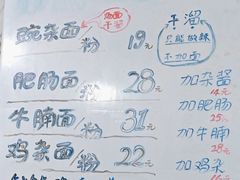 豌杂面
粉 19元
干溜
只能做辣
不加面
肥肠面
粉 28元
加杂酱
14元
加肥肠
牛腩面
粉 31元
25元
加牛腩
28元
鸡杂面
粉 22元
加鸡杂